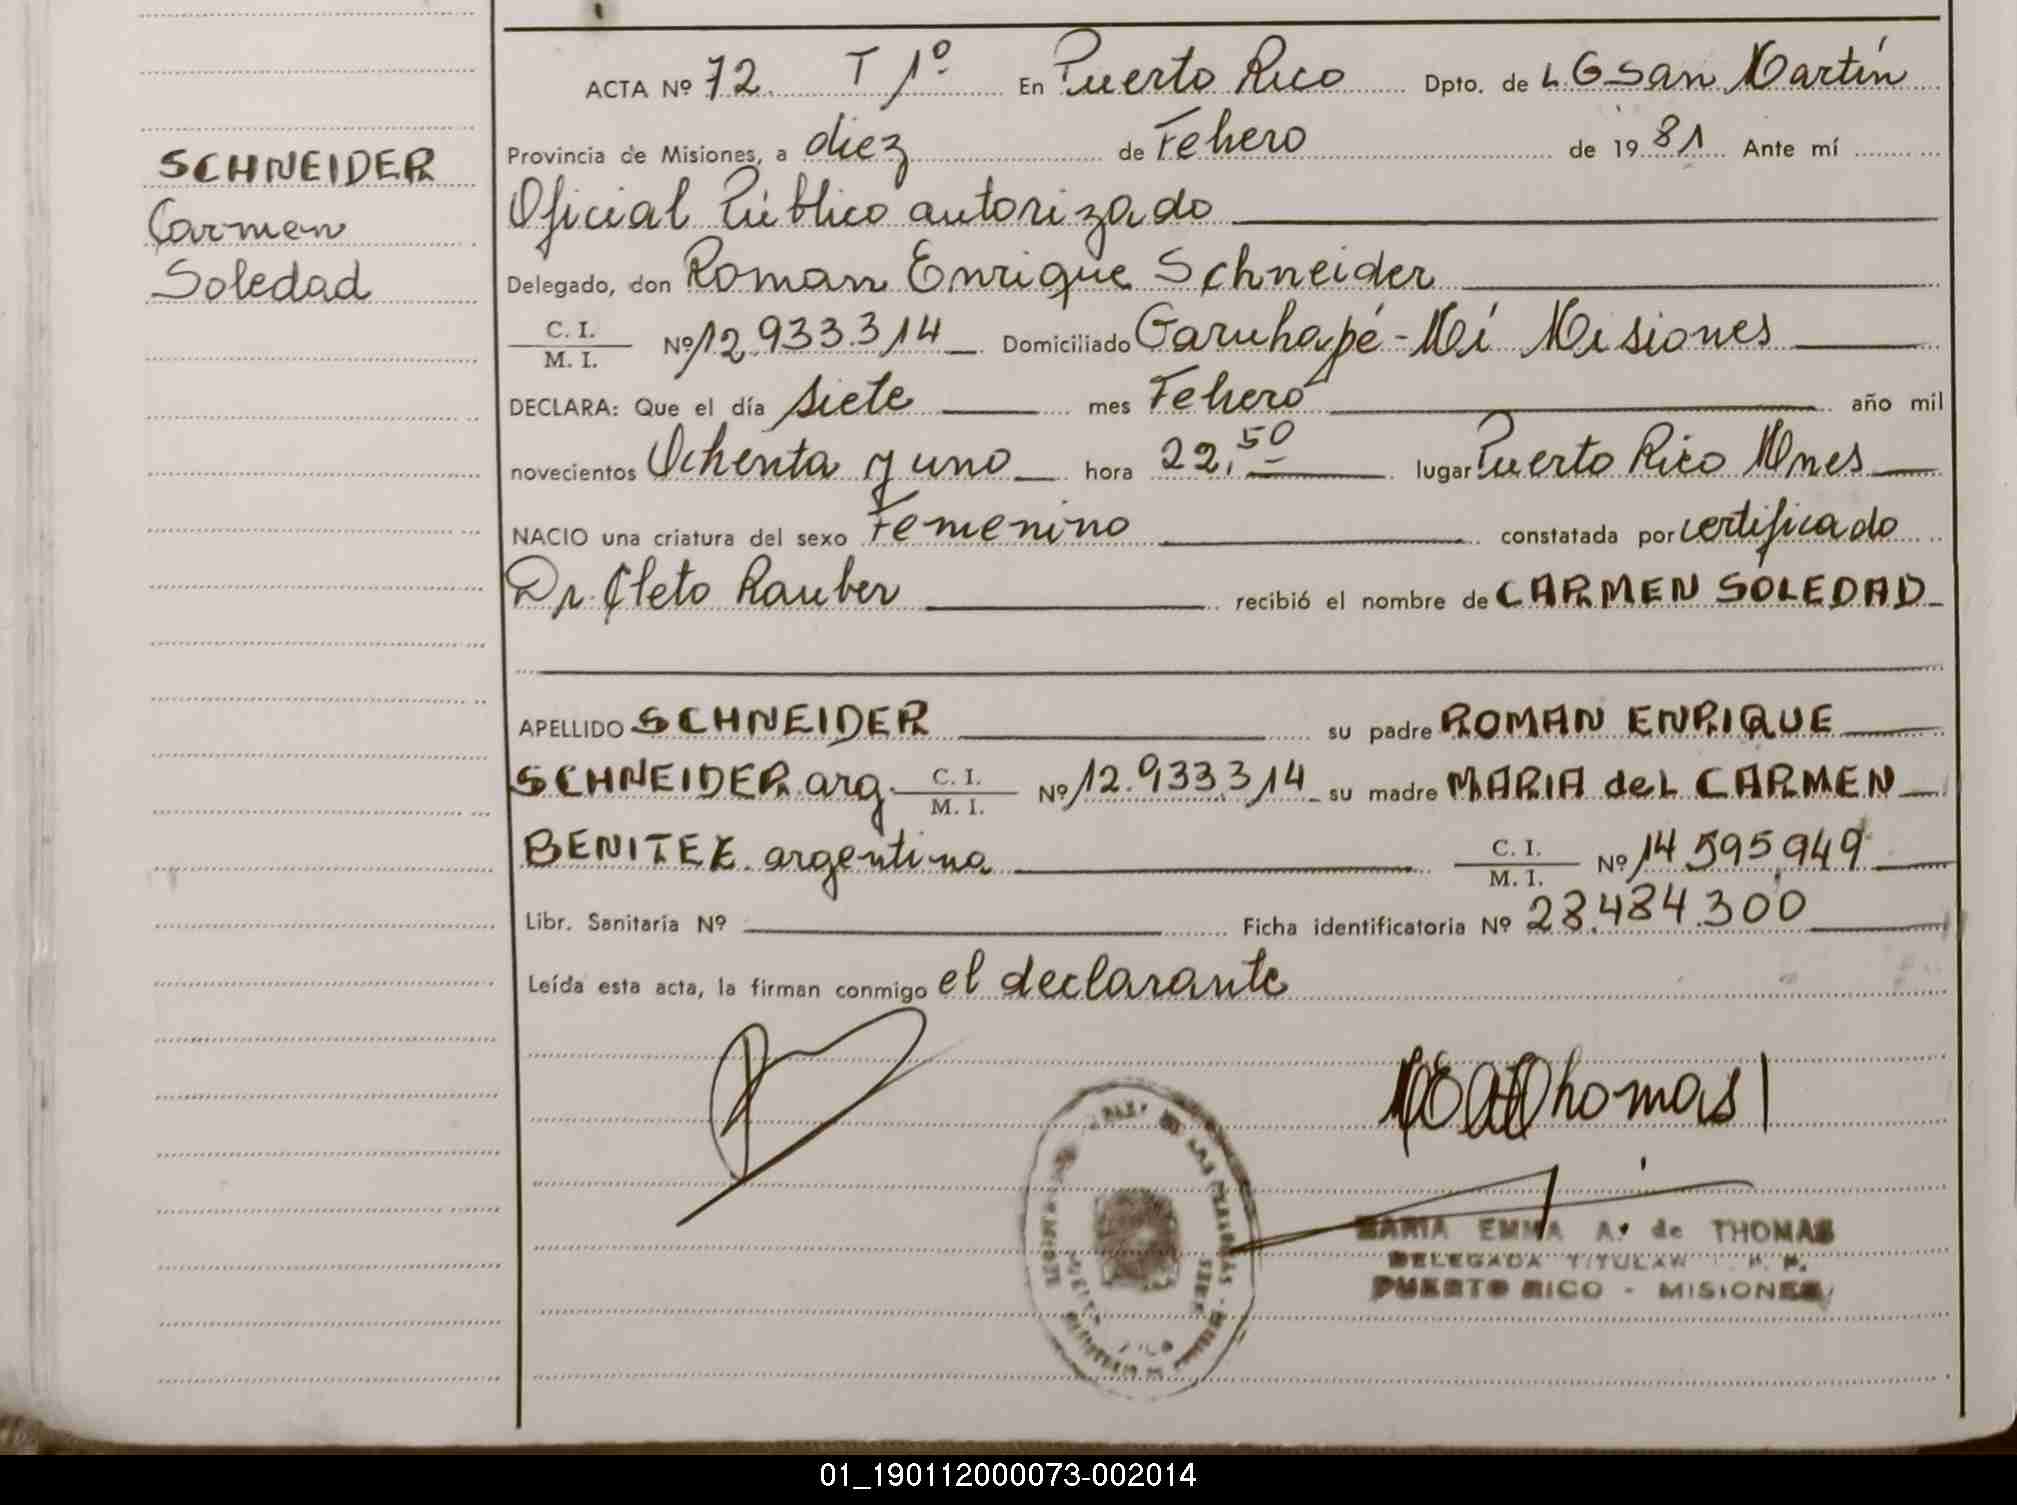 SCHNEIDER
Carmen
Soledad
ACTA Nº 72 T 1º En Puerto Rico Dpto. de L.G San Martín
Provincia de Misiones, a diez de Febrero de 1981 Ante mí
Oficial Público autorizado
Delegado, don Roman Enrique Schneider
C. I. / M. I. Nº 12.933.314 Domiciliado Garuhapé-Mí Misiones
DECLARA: Que el día siete mes Febrero año mil
novecientos Ochenta y uno hora 22,50 lugar Puerto Rico Mnes
NACIO una criatura del sexo Femenino constatada por certificado
Dr. Cleto Rauber recibió el nombre de CARMEN SOLEDAD
APELLIDO SCHNEIDER su padre ROMAN ENRIQUE
SCHNEIDER arg. C. I. / M. I. Nº 12.933.314 su madre MARIA deL CARMEN
BENITEZ argentina C. I. / M. I. Nº 14.595.949
Libr. Sanitaria Nº Ficha identificatoria Nº 28.484.300
Leída esta acta, la firman conmigo el declarante
Thomas
MARIA EMMA A. de THOMAS
DELEGADA TITULAR
PUERTO RICO - MISIONES
01_190112000073-002014